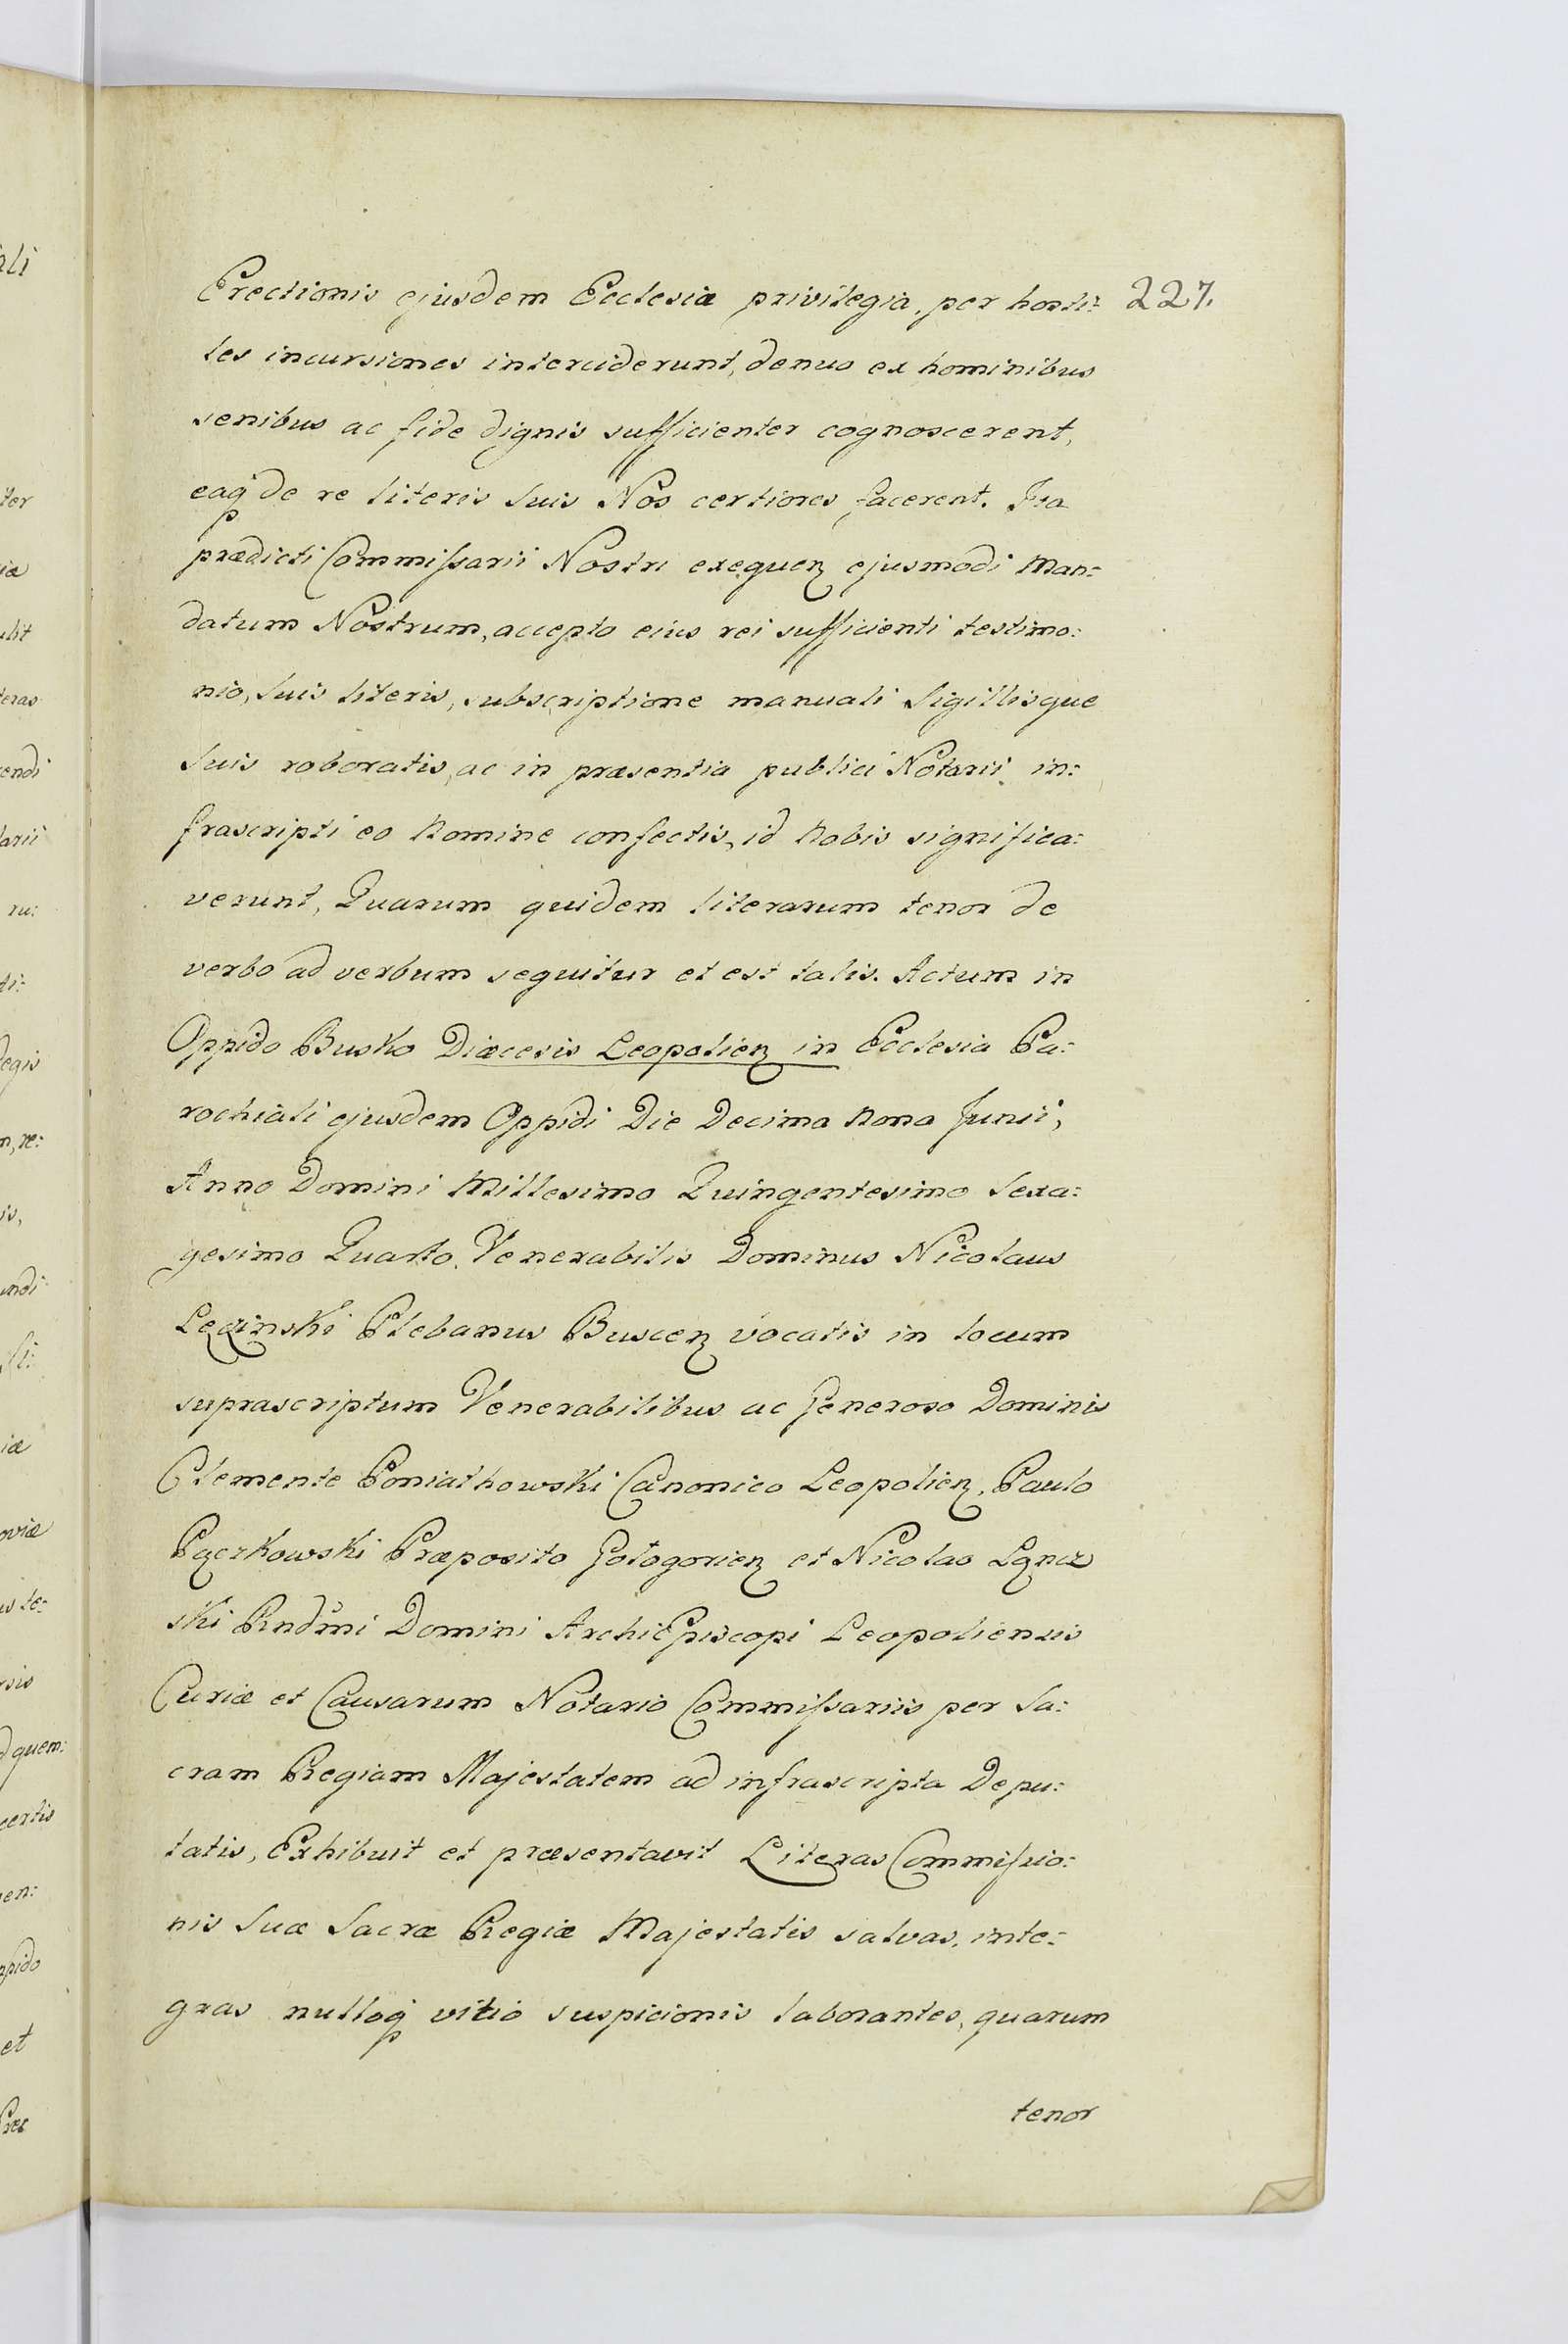 Erectionis ejusdem Ecclesiæ privilegia, per hosti: 227.
les incursiones interciderunt, denuo ex hominibus
senibus ac fide dignis sufficienter cognoscerent,
eaq́ de re literis suis Nos certiores facerent. Ita
prædicti Commissarii Nostri exequen ejusmodi Man:
datum Nostrum, accepto eius rei sufficienti testimo:
nio, suis literis, subscriptione manuali Sigillisque
suis roboratis, ac in præsentia publici Notarii in:
frascripti eo Nomine confectis, id Nobis significa:
verunt, Quarum quidem literarum tenor de
verbo ad verbum sequitur et est talis. Actum in
Oppido Busko Diæcesis Leopolien in Ecclesia Pa:
rochiali ejusdem Oppidi Die Decima Nona Junii,
Anno Domini Millesimo Quingentesimo Sexa:
gesimo Quarto. Venerabilis Dominus Nicolaus
Plebanus Buscen vocatis in locum
suprascriptum Venerabilibus ac Generoso Dominis
Clemente Poniathowski Canonico Leopolien, Paulo
Pączkowski Præposito Gologorien et Nicolao Łącz
ski Rndmi Domini ArchiEpiscopi Leopoliensis
Curiæ et Causarum Notario Commissariis per Sa:
cram Regiam Majestatem ad infrascripta Depu:
tatis, Exhibuit et præsentavit Literas Commissio:
nis Suæ Sacræ Regiæ Majestatis salvas, inte:
gras nulloq́ vitio suspicionis laborantes, quarum
tenor